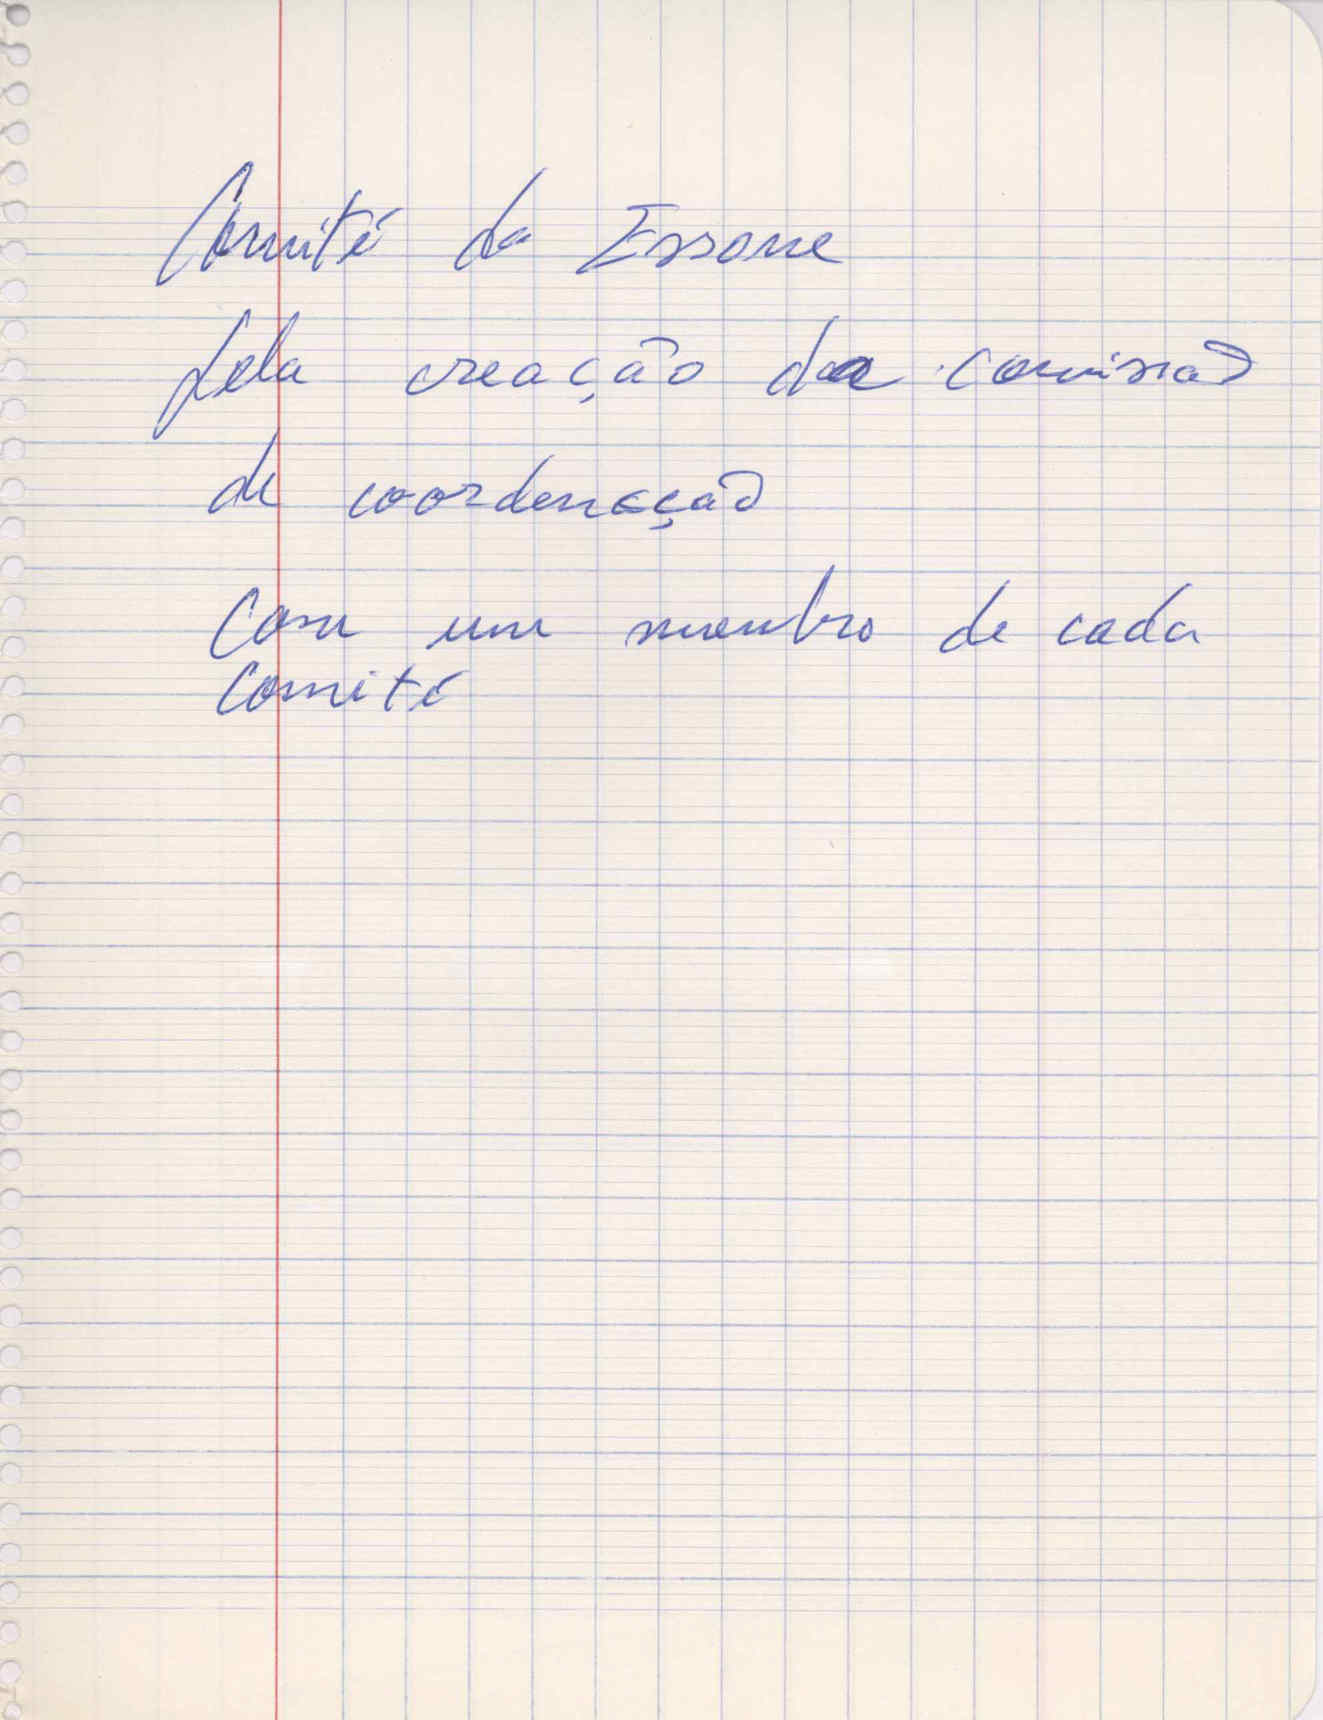 Comité da Essone
pela creação da comissão
de coordenação
Com um membro de cada
Comité